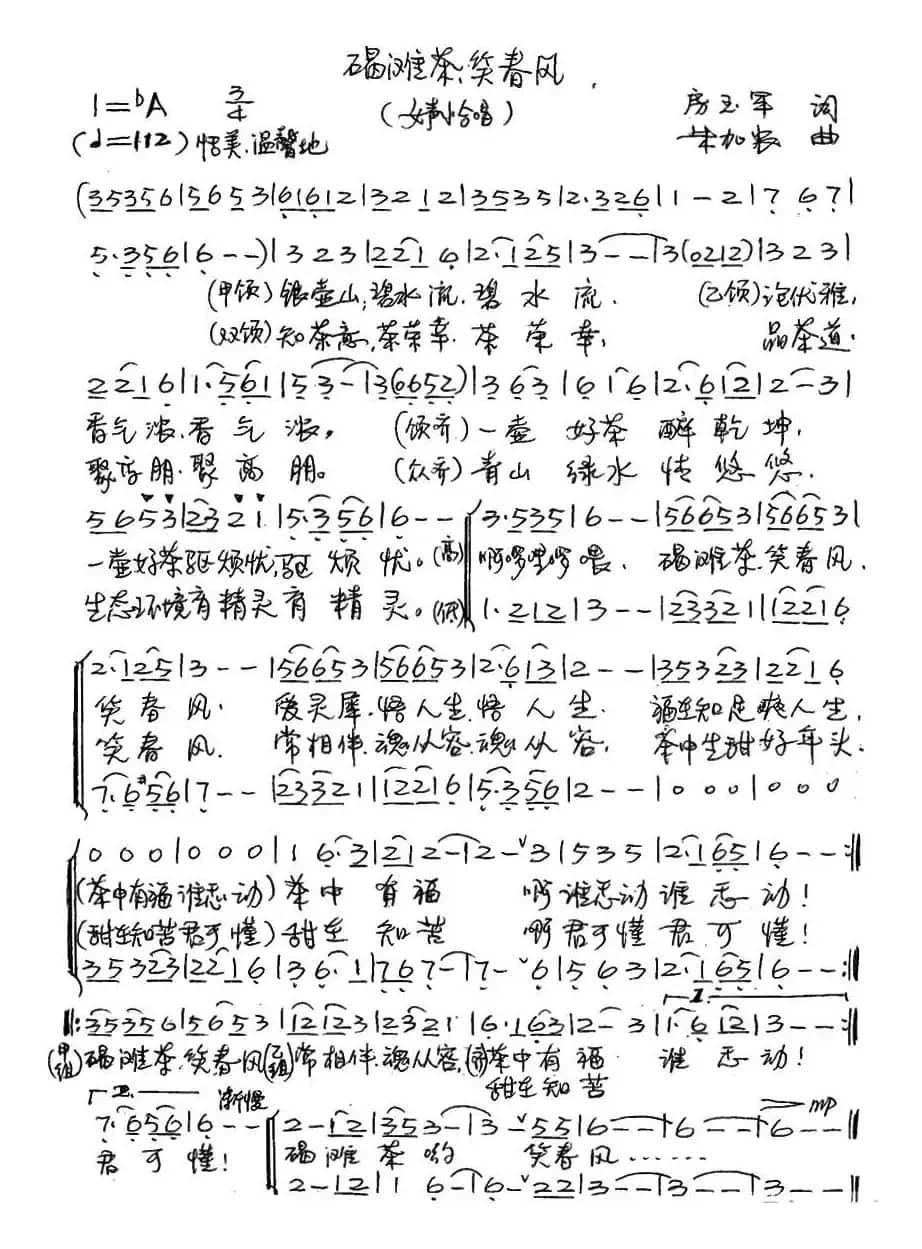 碣滩茶,笑春风
1=bA 3/4 (女声小合唱) 房玉军 词
(d=112) 恬美.温馨地 朱加农 曲
(35356|5653|61612|3212|35353|2·326|1-2|7 6 7|
5·356|6--)|323|221 6|2·125|3--|3(0212)|323|
(甲领)银壶山,碧水流.碧水流. (乙领)泡优雅,
(双领)知茶意,茶荣幸.茶荣幸, 品茶道.
2216|1·561|53-|3(6652)|363|616|2·612|2-3|
香气浓.香气浓。(领齐)一壶好茶醉乾坤,
聚高朋.聚高朋。(众齐)青山绿水情悠悠.
5653|2321|5·356|6--|3·535|6--|56653|56653|
一壶好茶驱烦忧,驱烦忧。(高)啊啰哩啰喂、碣滩茶.笑春风.
生态环境育精灵育精灵。(低)1·212|3--|23321|12216
2·125|3--|56653|56653|2·613|2--|35323|2216
笑春风. 爱灵犀.悟人生.悟人生. 福在知足爽人生,
笑春风. 常相伴.魂从容.魂从容, 茶中生甜好年头.
7·6#56|7--|23321|12216|5·356|2--|000|000
000|000|1 6·3|212-|2-ˇ3|535|2·165|6--:||
(茶中有福谁悉动)茶中有福 啊谁悉动谁悉动!
(甜在知苦君可懂)甜在知苦 啊君可懂君可懂!
35323|2216|36·1|767-|7-ˇ6|563|2·165|6--:||
1.
||:35356|5653|12123|2321|6·163|2-3|1·612|3--:||
(甲组)碣滩茶.笑春风(乙组)常相伴.魂从容,(齐)茶中有福. 谁悉动!
甜在知苦
2. 渐慢 mp
7·656|6--|2-12|353-|3ˇ55|6--|6--|6--||
君可懂! 碣滩茶哟 笑春风……
2-12|1 6-|6-ˇ22|3--|3--|3--||